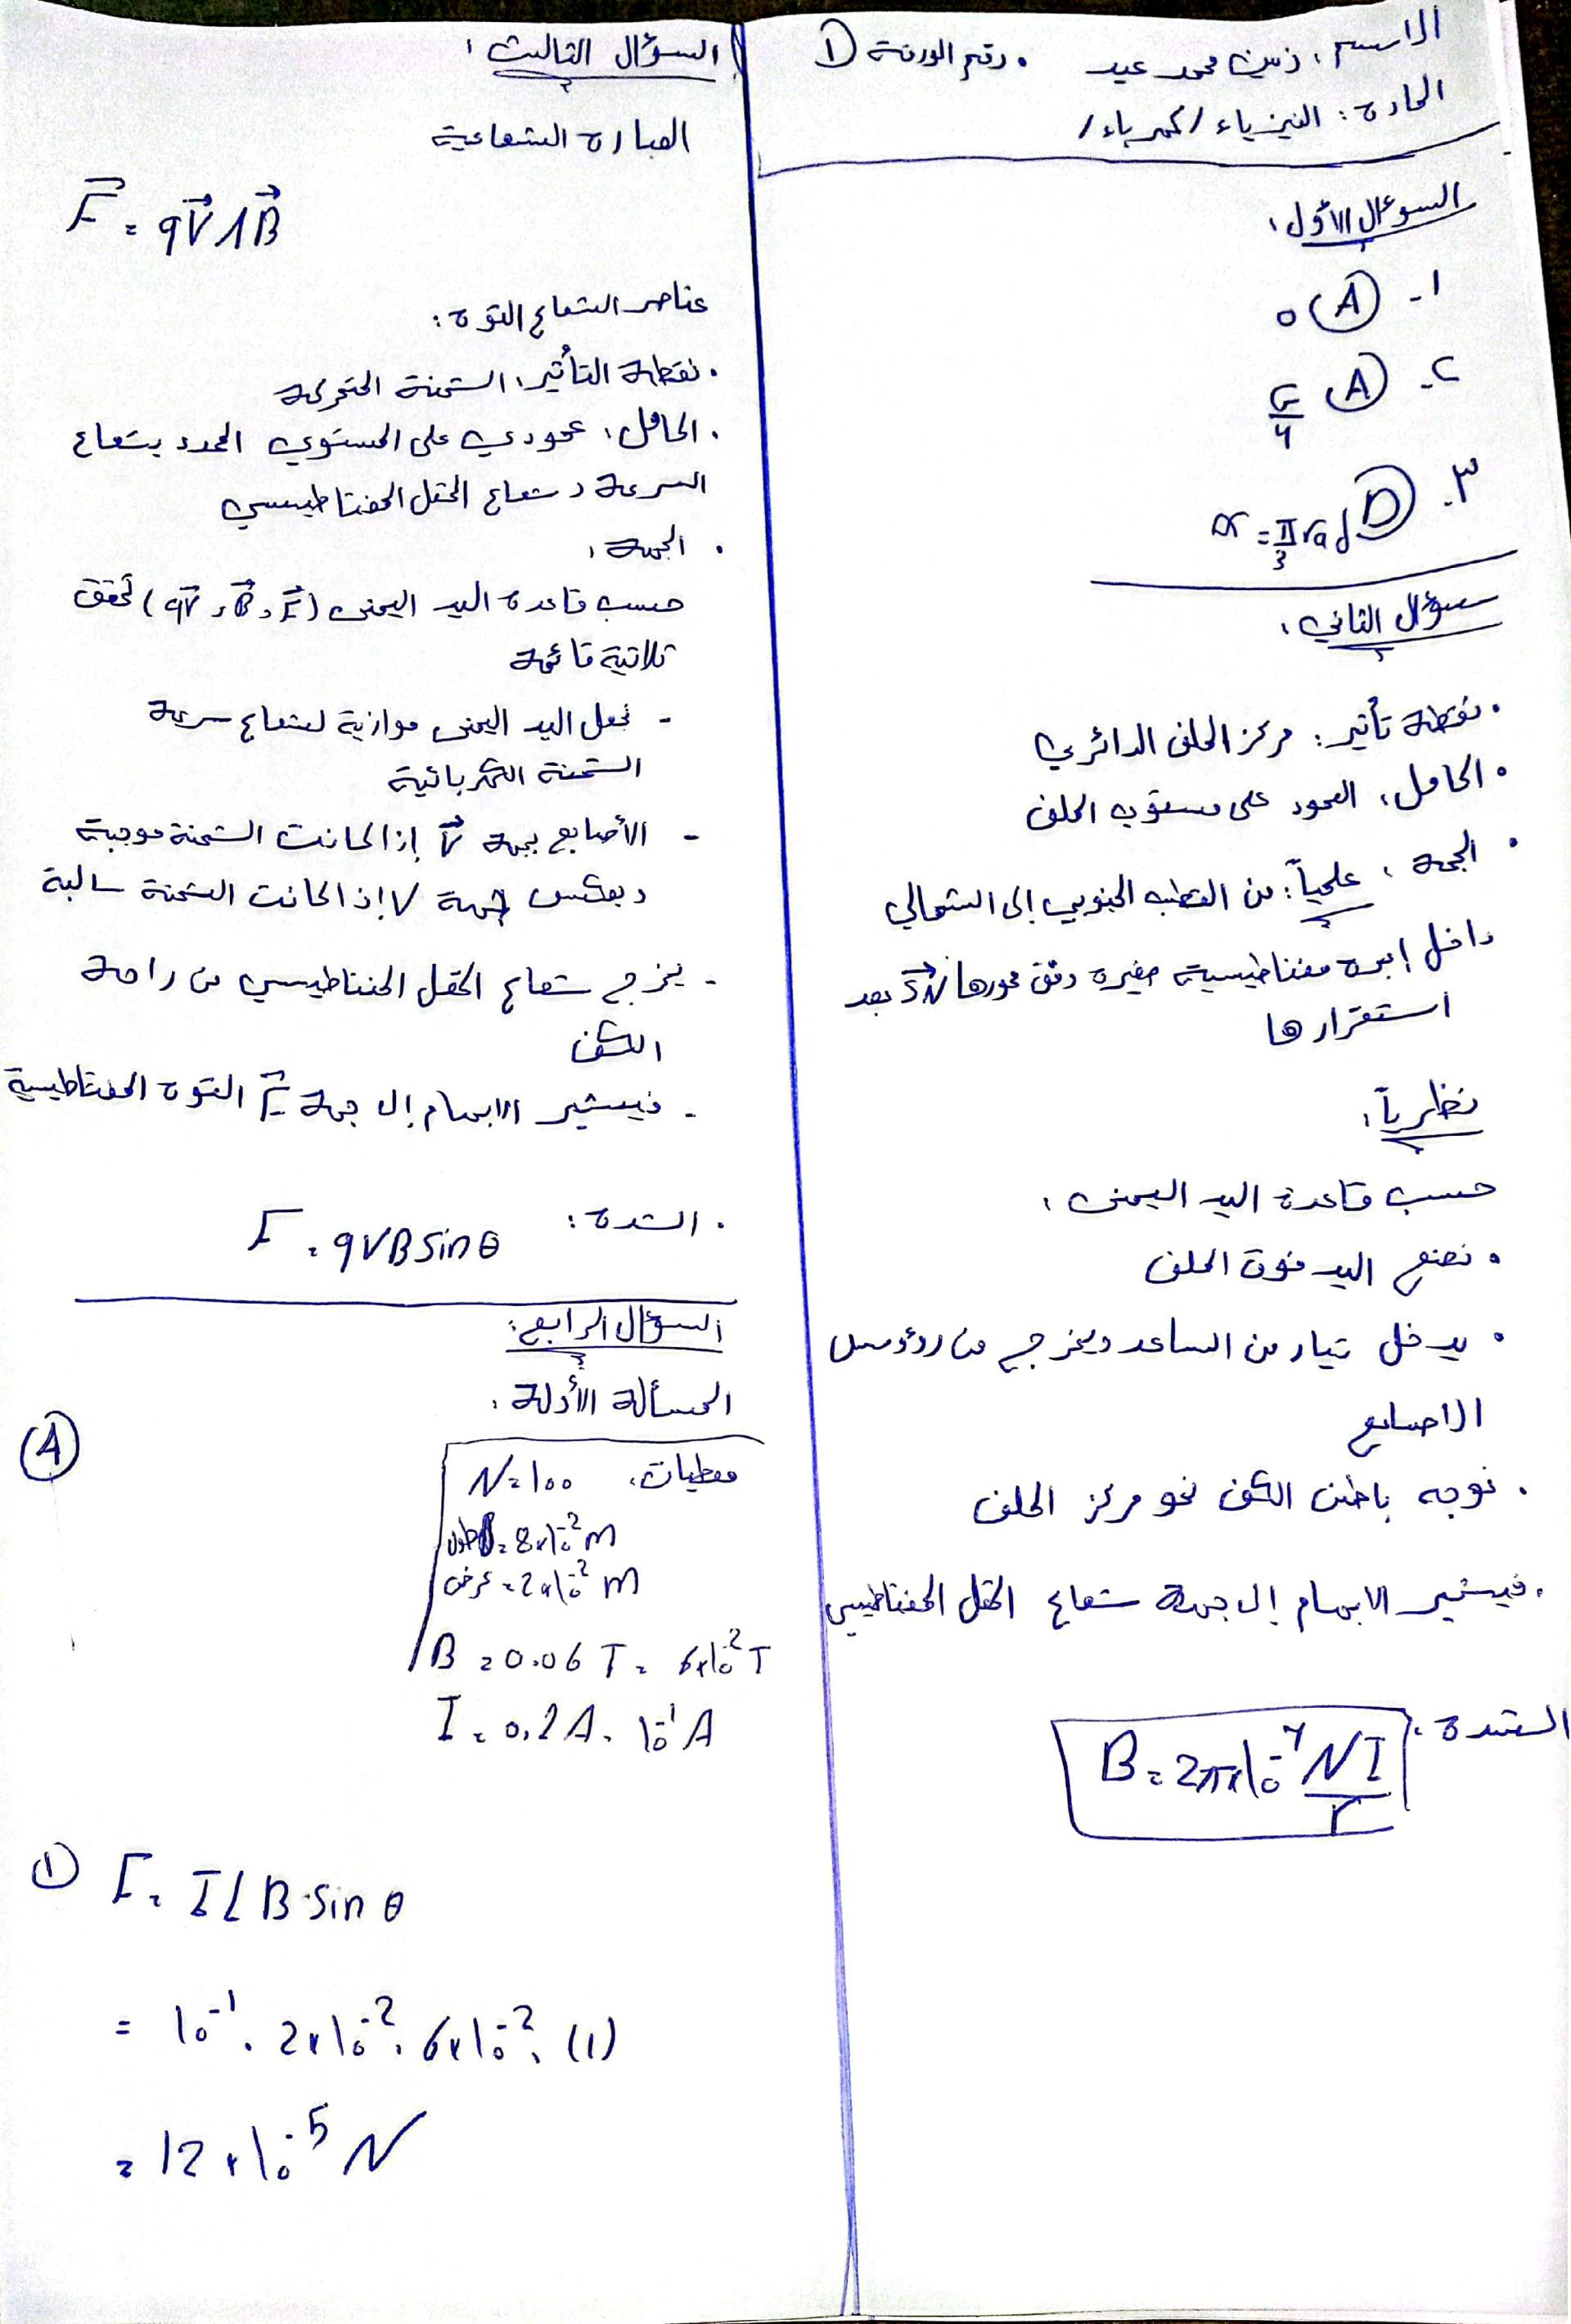 الاسم: زين محمد عيد . رقم الورقة ①
المادة: الفيزياء /كهرباء/
السوءال الأول:
١- Ⓐ 0
٢- Ⓐ
٣- Ⓓ α = π/3 rad
سؤال الثاني:
• نقطة تأثير: مركز الملف الدائري
• الحامل: العمود على مستوي الملف
• الجهة: علمياً: من القطب الجنوبي إلى الشمالي
داخل إبرة مغناطيسية صغيرة وفق محورها SN بعد
استقرارها
نظرياً:
حسب قاعدة اليد اليمنى:
• نضع اليد فوق الملف
• يدخل تيار من الساعد ويخرج من رؤوس
الاصابع
. نوجه باطن الكف نحو مركز الملف
. فيشير الابهام إلى جهة شعاع الحقل المغناطيسي
الشدة: B = 2π×10⁻⁷ NI/r
السؤال الثالث:
العبارة الشعاعية
F⃗ = qV⃗ ∧ B⃗
عناصر الشعاع القوة:
. نقطة التأثير: الشحنة المتحركة
. الحامل: عمودي على المستوي المحدد بشعاع
السرعة و شعاع الحقل المغناطيسي
. الجهة:
حسب قاعدة اليد اليمنى (qV⃗, B⃗, F⃗) تحقق
ثلاثية قائمة
- نجعل اليد اليمنى موازية لشعاع سرعة
الشحنة الكهربائية
- الأصابع بجهة V⃗ إذا كانت الشحنة موجبة
و بعكس جهة V إذا كانت الشحنة سالبة
- يخرج شعاع الحقل المغناطيسي من راحة
الكف
- فيشير الابهام إلى جهة F⃗ القوة المغناطيسية
. الشدة: F = qVB sin θ
السؤال الرابع:
المسألة الأولة:
Ⓐ
معطيات: N = 100
طول = 8×10⁻² m
عرض = 2×10⁻² m
B = 0.06 T = 6×10⁻² T
I = 0.1 A = 10⁻¹ A
① F = I L B sin θ
= 10⁻¹ . 2×10⁻² . 6×10⁻² . (1)
= 12×10⁻⁵ N